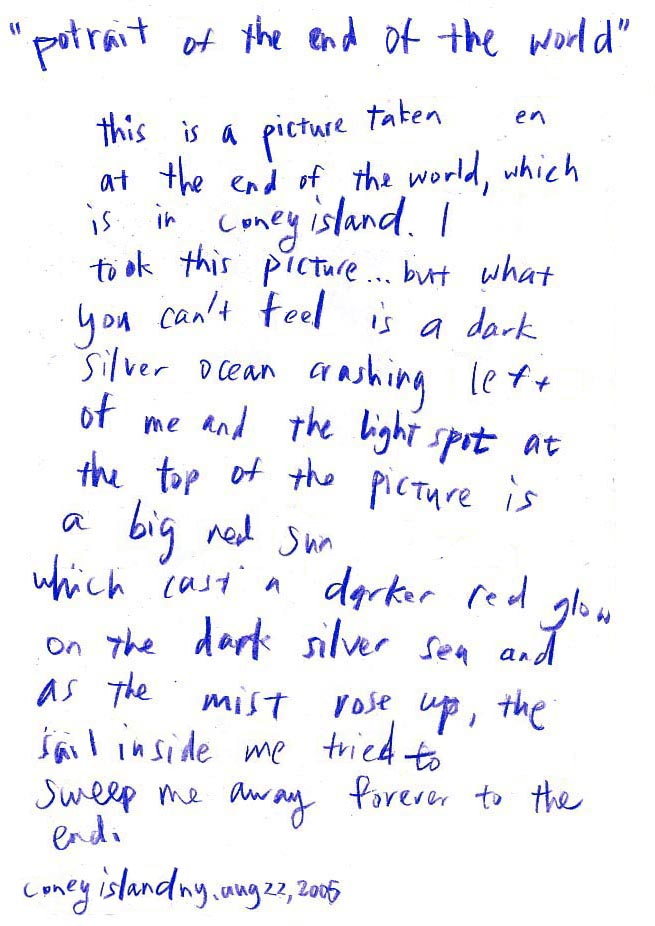 "potrait of the end of the world"
this is a picture taken en
at the end of the world, which
is in coney island. I
took this picture... but what
you can't feel is a dark
silver ocean crashing left
of me and the light spot at
the top of the picture is
a big red sun
which cast a darker red glow
on the dark silver sea and
as the mist rose up, the
sail inside me tried to
sweep me away forever to the
end.
coney island ny. aug 22, 2005